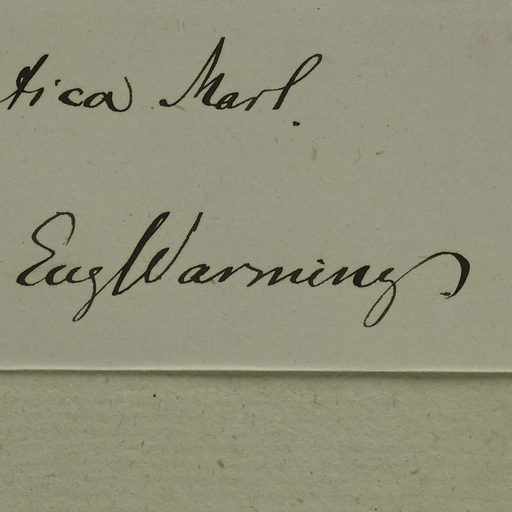 tica Mart.
Eug Warming